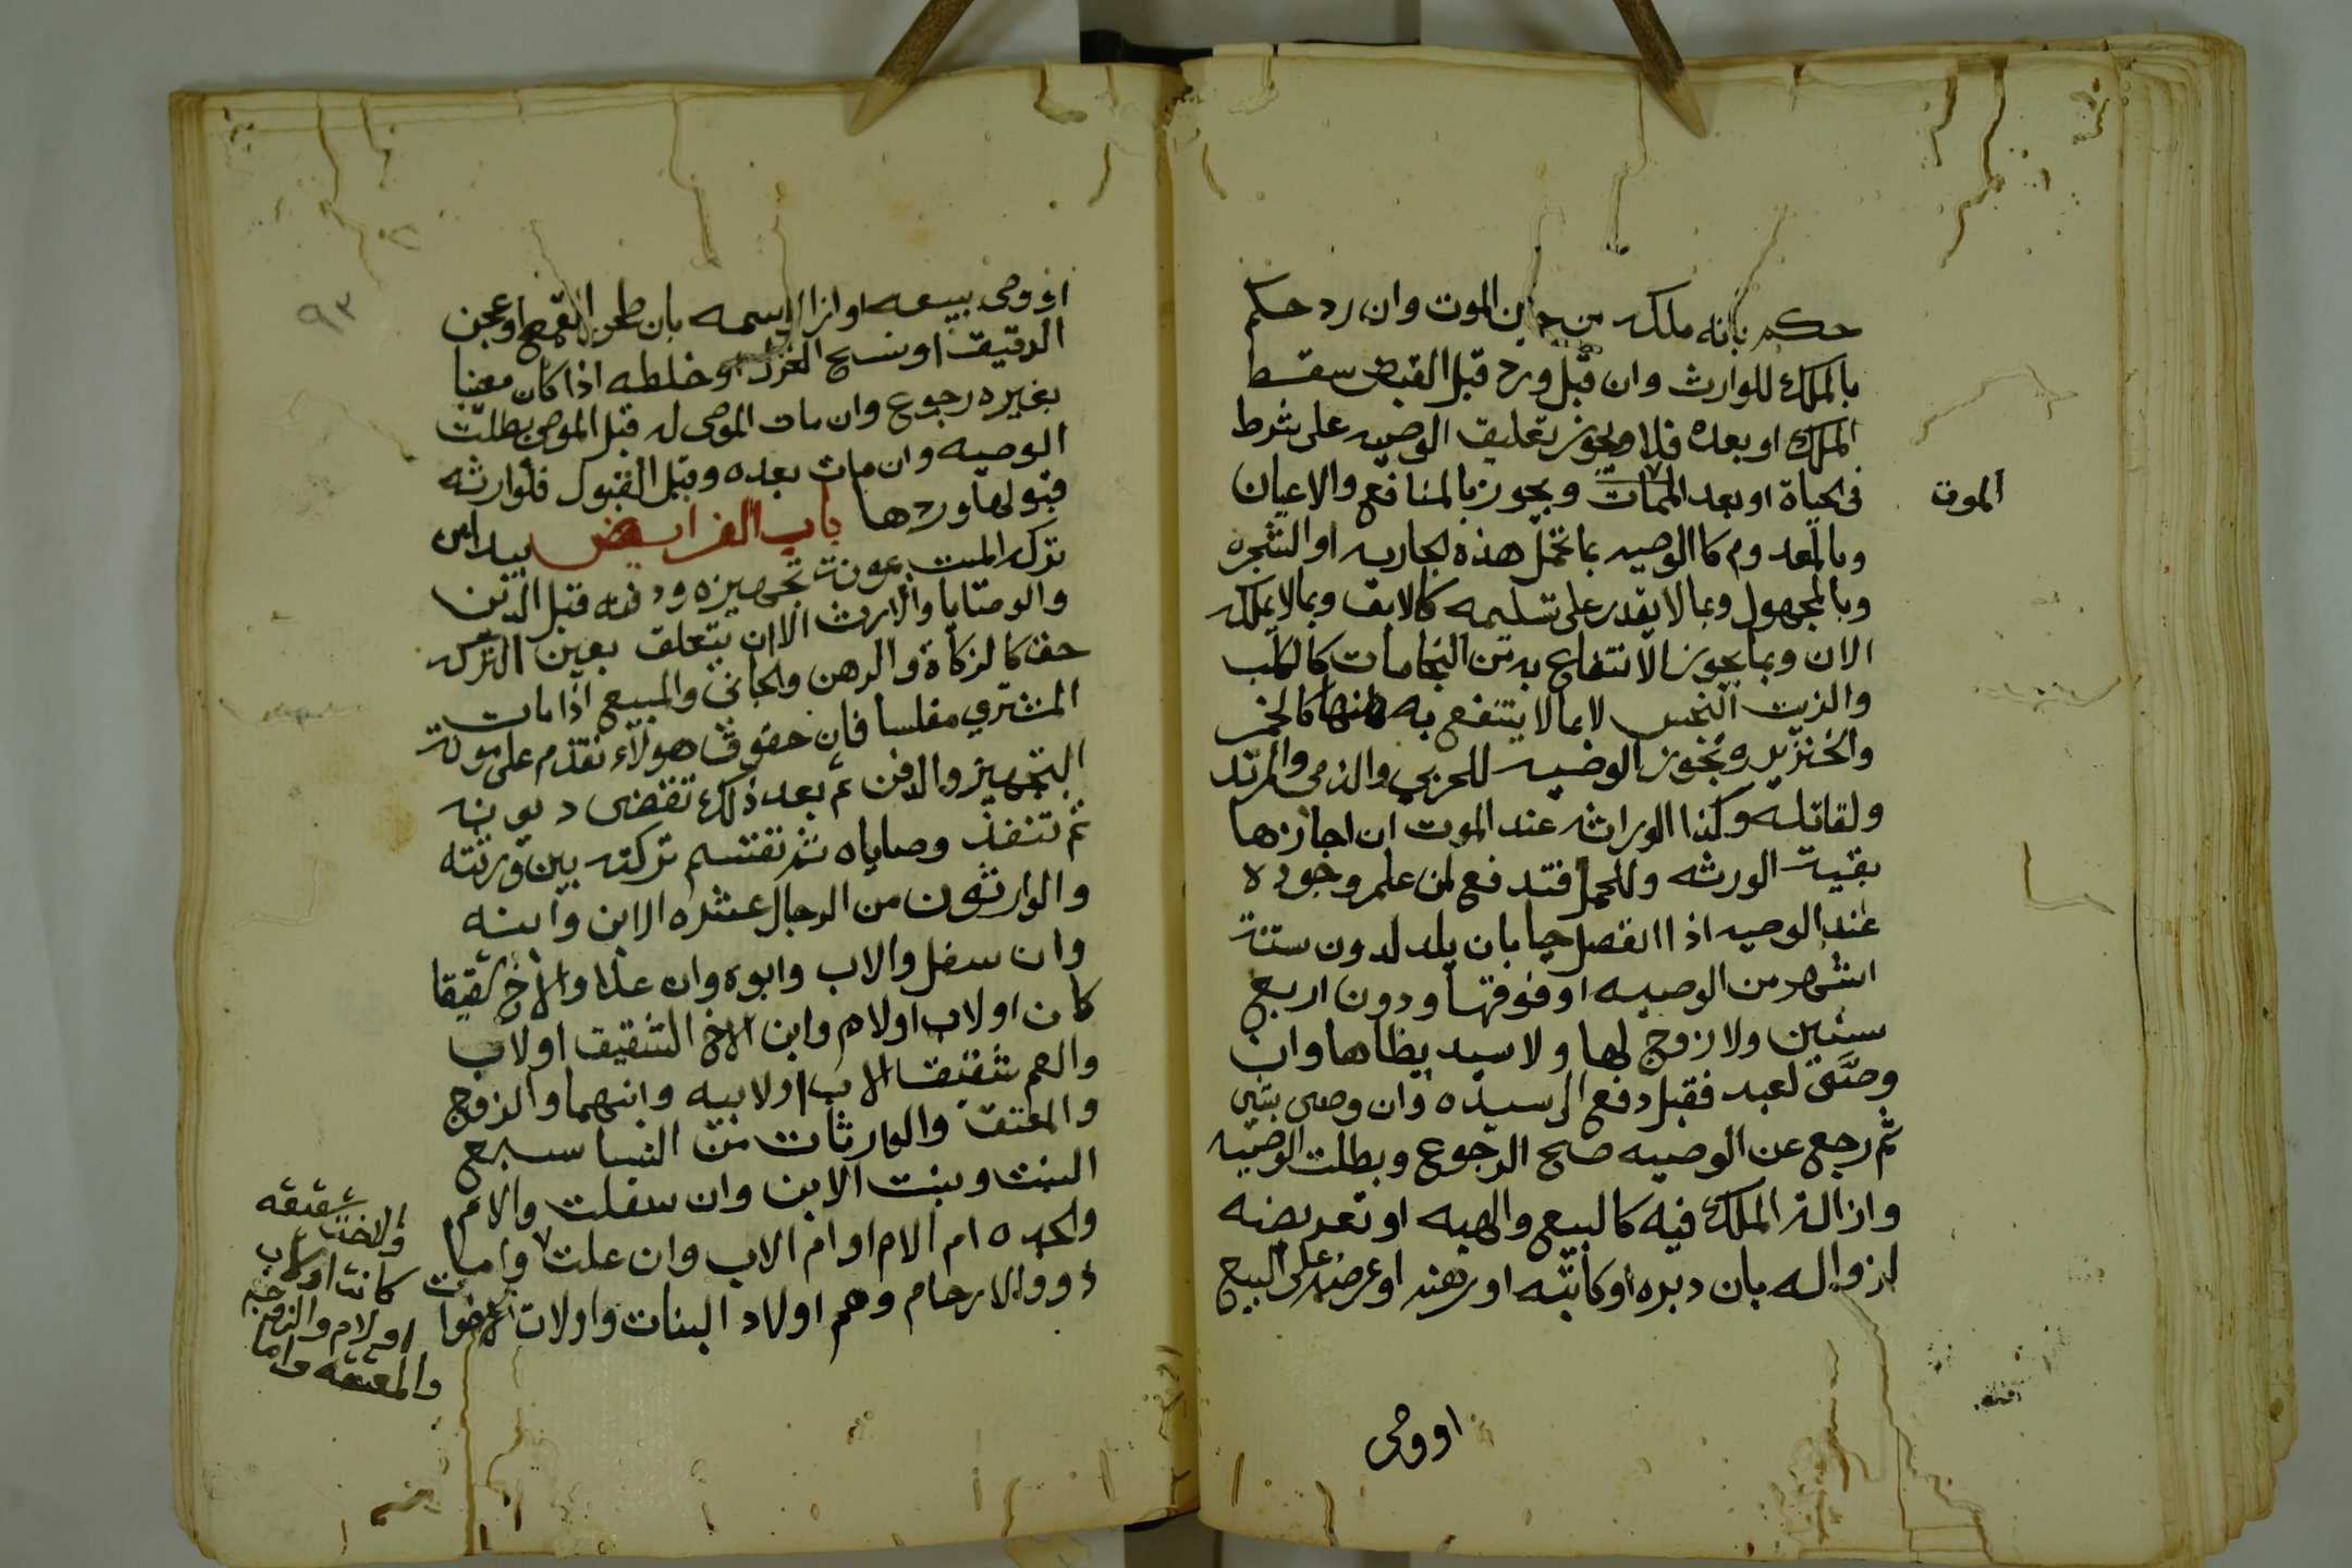 حكم بانه ملكه من حين الموت وان رد حكم
بالملك للوارث وان قبل ورد قبل القبض سقط
الملك او بعده فلا ويجوز تعليق الوصيه على شرط
فى الحياة او بعد الممات ويجوز بالمنافع والاعيان
الموت
وبالمعدوم كالوصيه بما تحمل هذه الجاريه او الشجره
وبالمجهول وبما لا يقدر على تسليمه كالابق وبما لا يملكه
الان وبما يجوز الانتفاع به من النجاسات كالكلب
والزيت النجس لا بما لا ينتفع به منها كالخمر
والخنزير وتجوز الوصيه للحربي والذمى والمرتد
ولقاتله وكذا لوارثه عند الموت ان اجازها
بقية الورثه وللحمل فتدفع لمن علم وجوده
عند الوصيه اذا انفصل حيا بان يلد لدون ستة
اشهر من الوصيه او فوقها ودون اربع
سنين ولا زوج لها ولا سيد يطاها وان
وصى لعبد فقبل دفع الى سيده وان وصى بشي
ثم رجع عن الوصيه صح الرجوع وبطلت الوصيه
وازالة الملك فيه كالبيع والهبه او تعريضه
لزواله بان دبره او كاتبه او رهنه او عرضه على البيع
او وصى
٩٣
او وصى ببيعه او ازال اسمه بان طحن القمح او عجن
الدقيق او نسج الغزل او خلطه اذا كان معينا
بغيره رجوع وان مات الموصى له قبل الموصى بطلت
الوصيه وان مات بعده وقبل القبول فلوارثه
قبولها وردها باب الفرايض يبدا من
تركه الميت بمونة تجهيزه ودفنه قبل الدين
والوصايا والارث الا ان يتعلق بعين التركه
حق كالزكاة والرهن والجانى والمبيع اذا مات
المشتري مفلسا فان حقوق هولاء تقدم على مونة
التجهيز والدفن ثم بعد ذلك تقضى ديونه
ثم تنفذ وصاياه ثم تقتسم تركته بين ورثته
والوارثون من الرجال عشره الابن وابنه
وان سفل والاب وابوه وان علا والاخ شقيقا
كان او لاب او لام وابن الاخ الشقيق او لاب
والعم شقيق الاب او لابيه وابنهما والزوج
والمعتق والوارثات من النسا سبع
البنت وبنت الابن وان سفلت والام
والجده ام الام او ام الاب وان علت واما
ذوو الارحام وهم اولاد البنات واولاد الاخوات
والاخت شقيقه
كانت او لاب
او لام والزوجه
والمعتقه واما